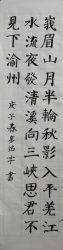 峩眉山月半輪秋影入平羌江
水流夜發清溪向三峽思君不
見下渝州
庚子春 書